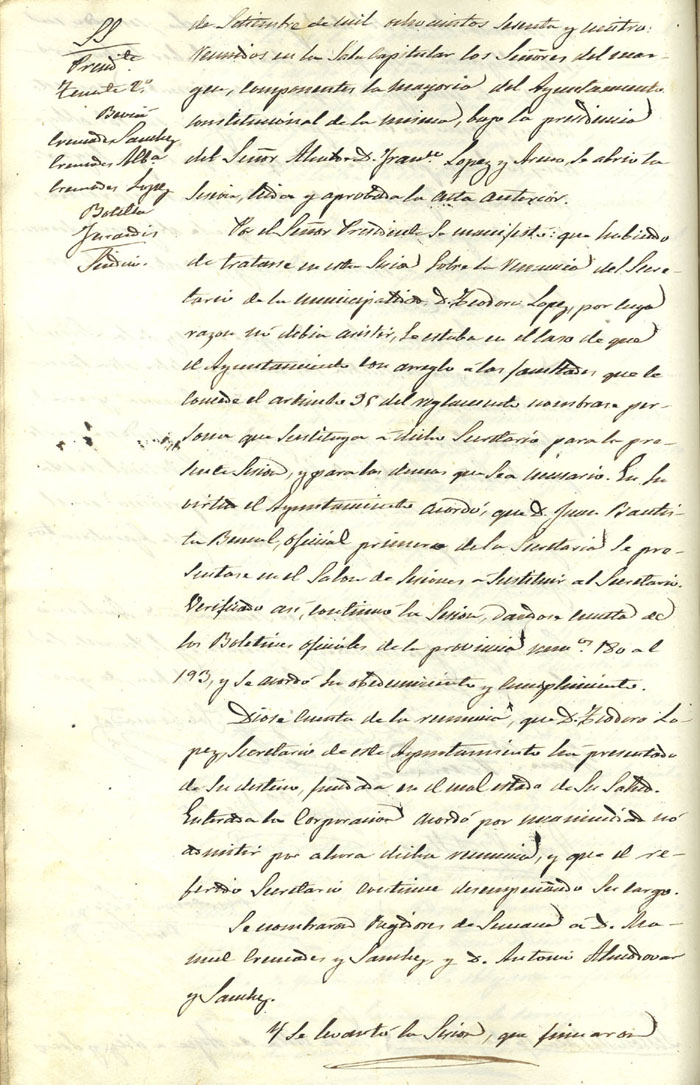 SS
Presid.te
Tente. 2.o
Bernia
Cremades Sanchez
Cremades Alba
Cremades Lopez
Botella
Jurandis
Sindico.
de Setiembre de mil ochocientos sesenta y cuatro:
Reunidos en la Sala Capitular los Señores del mar-
gen, componentes la mayoria del Ayuntamiento
constitucional de la misma, bajo la presidencia
del Señor Alcalde D. Fran.co Lopez y, se abrio la
sesion, leida y aprobada la acta anterior.
Por el Señor Presidente se manifestó: que habiendo
de tratarse en esta Sesion sobre la renuncia del Secre-
tario de la municipalidad D. Teodoro Lopez, por cuya
razon no debia asistir, se estaba en el caso de que
el Ayuntamiento con arreglo á las facultades que le
concede el articulo 35 del reglamento nombrase per-
sona que sustituya á dicho Secretario para la pre-
sente Sesion, y para las demas que sea necesario. En su
virtud el Ayuntamiento acordó, que D. Juan Bautis-
ta, oficial primero de la Secretaria se pre-
sentase en el Salon de Sesiones á sustituir al Secretario.
Verificado asi, continuo la Sesion, dandose cuenta de
los Boletines oficiales de la provincia num.os 180 al
193, y se acordó su obedecimiento y cumplimiento.
Diose cuenta de la renuncia, que D. Teodoro Lo-
pez, Secretario de este Ayuntamiento ha presentado
de su destino, fundada en el mal estado de su salud.
Enterada la Corporacion acordó por unanimidad no
admitir por ahora dicha renuncia, y que el re-
ferido Secretario continue desempeñando su cargo.
Se nombraron Regidores de Semana á D. Ma-
nuel Cremades y Sanchez, y D. Antonio Almodovar
y Sanchez.
Y se levantó la Sesion, que firmaron